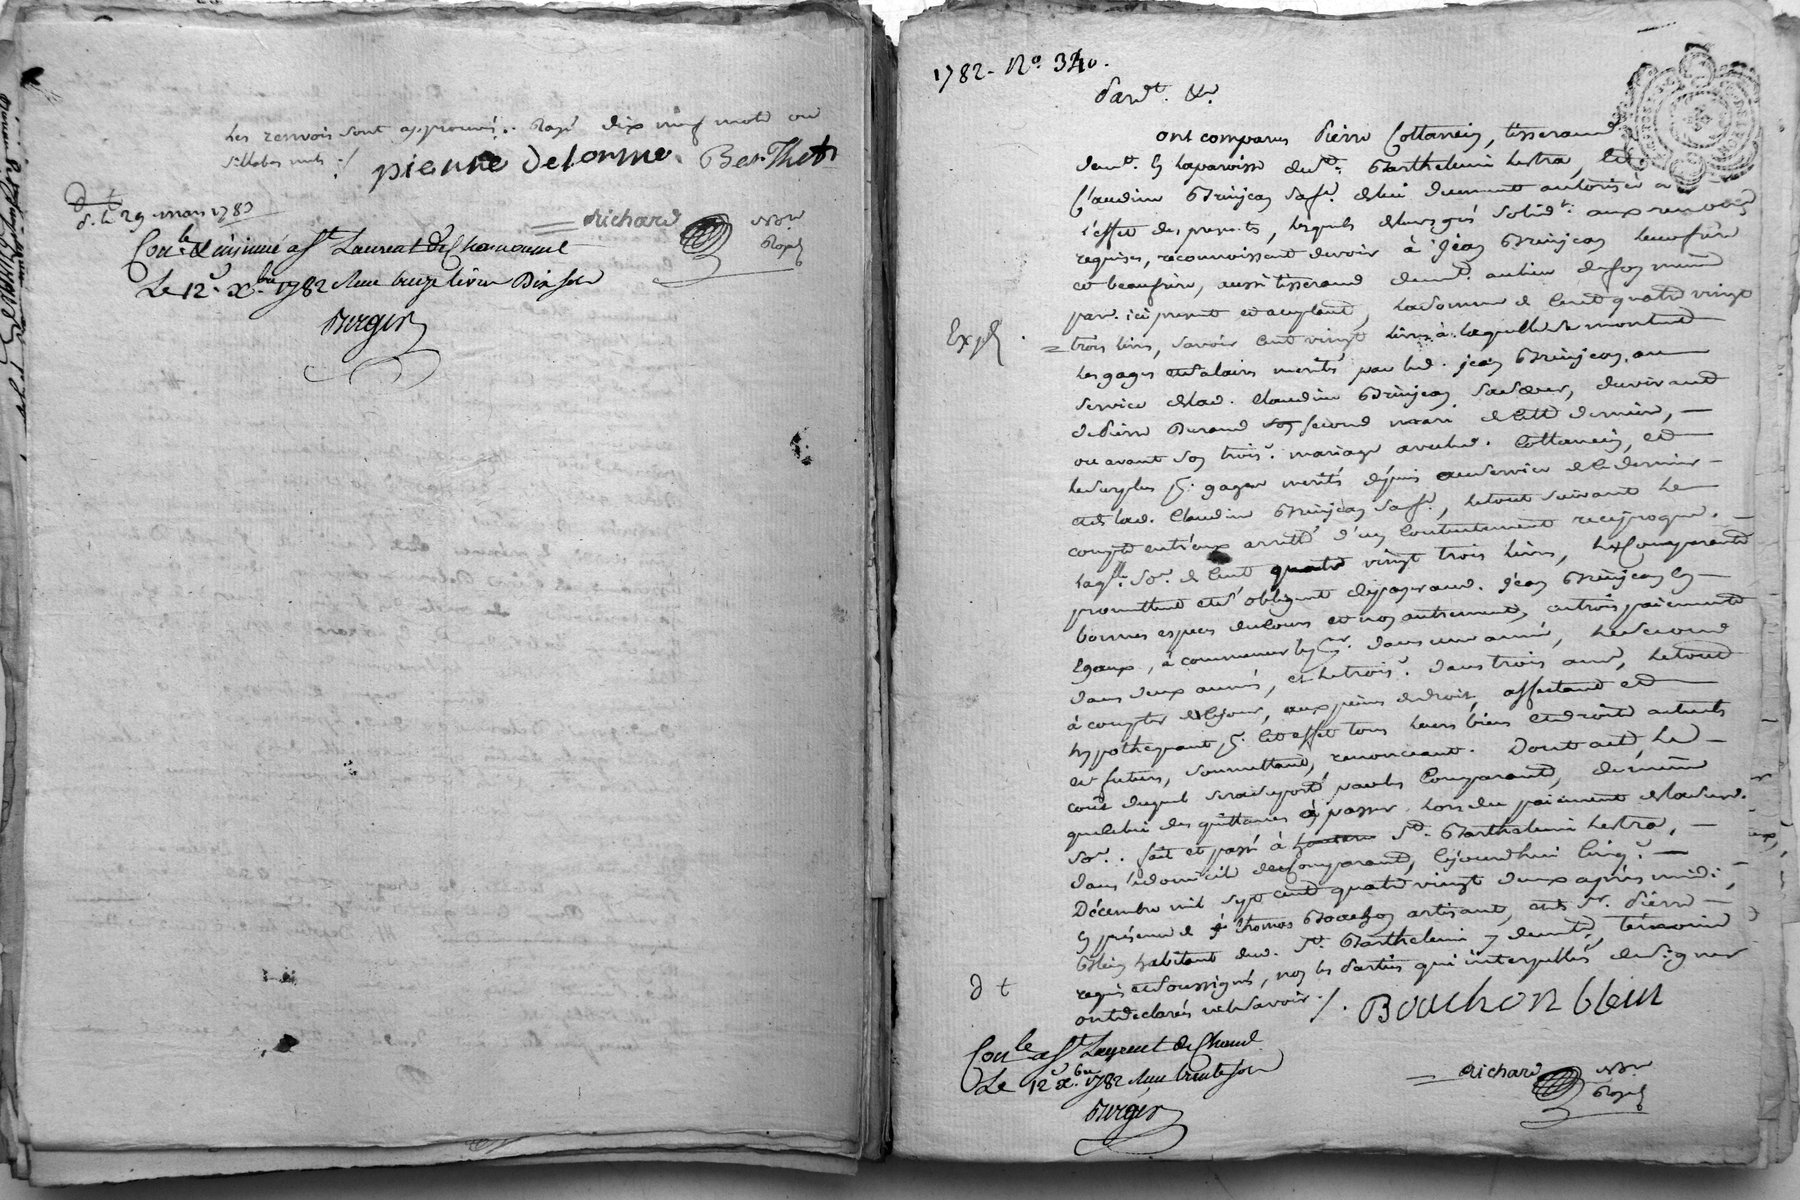 les renvois sont approuvés. Rayé dix neuf mots ou
sillabes nuls ./. pierre delorme. Berthet
d t
d. le 29 mars 1783
Richard no.re Royal
Con.lé & insinué a St Laurent de Chamousset
Le 12.e x.bre 1782 Reçu treize livres Dix sols
Berger
1782. No. 340.
Pardt. &c.
ont comparus Pierre Cottancin, tisserand
demt. en la paroisse de St. Barthelemi Lestra, et
Claudine Brinjon sa fe. de lui duement autorisée a
l'effet des presentes, lesquels de leurs grés solidt. aux renon.ons
requises, reconnoissent devoir à Jean Brinjon leur frere
et beaufrere, aussi tisserand demt. au lieu de
par. ici present et acceptant, la somme de Cent quatre vingt
Expé.
trois livres, savoir cent vingt livres à laquelle se montent
les gages et salaires merités par led. jean Brinjon au
service de lad. Claudine Brinjon sa sœur, du vivant
de Pierre Durand son second mari decédé dernier,
ou avant son trois.e mariage avec led. Cottancin, et
le surplus pr. gages merités depuis au service de ce dernier
et de lad. Claudine Brinjon sa fe., le tout suivant le
compte entr'eux arretté d'un contentement reciproque.
Laqlle. so.e de Cent quatre vingt trois livres, les comparants
promettent et s'obligent de payer aud. jean Brinjon en
bonnes especes de cours et non autrement, en trois paiements
Egaux, à commencer le pr. dans une année, le second
dans deux années, et le trois.e dans trois ans, le tout
à compter de ce jour, aux peines de droit, affectant et
hypothequant pr. cet effet tous leurs biens et droits actuels
et futurs, soumettant, renonceant. Dont acte, le
coût duquel sera suporté par les Comparants, de même
que celui des quittances à passer lors du paiement de la susd.
so.e. fait et passé à St. Barthelemi Lestra,
dans le domicile des comparants, cejourdhui cinq.e
Décembre mil sept cent quatre vingt deux après midi,
en présence de Thomas Bouchon artisant, et de Sr. Pierre
Blein habitant dud. St. Barthelemi y demts, témoins
requis et soussignés, non les Parties qui interpellés de signer
d t
ont declarés ne le savoir ./. Bouchon blein
Con.lé a St Laurent de Chamt.
Le 12.e x.bre 1782 Reçu trente sols
Richard no.re Royal
Berger